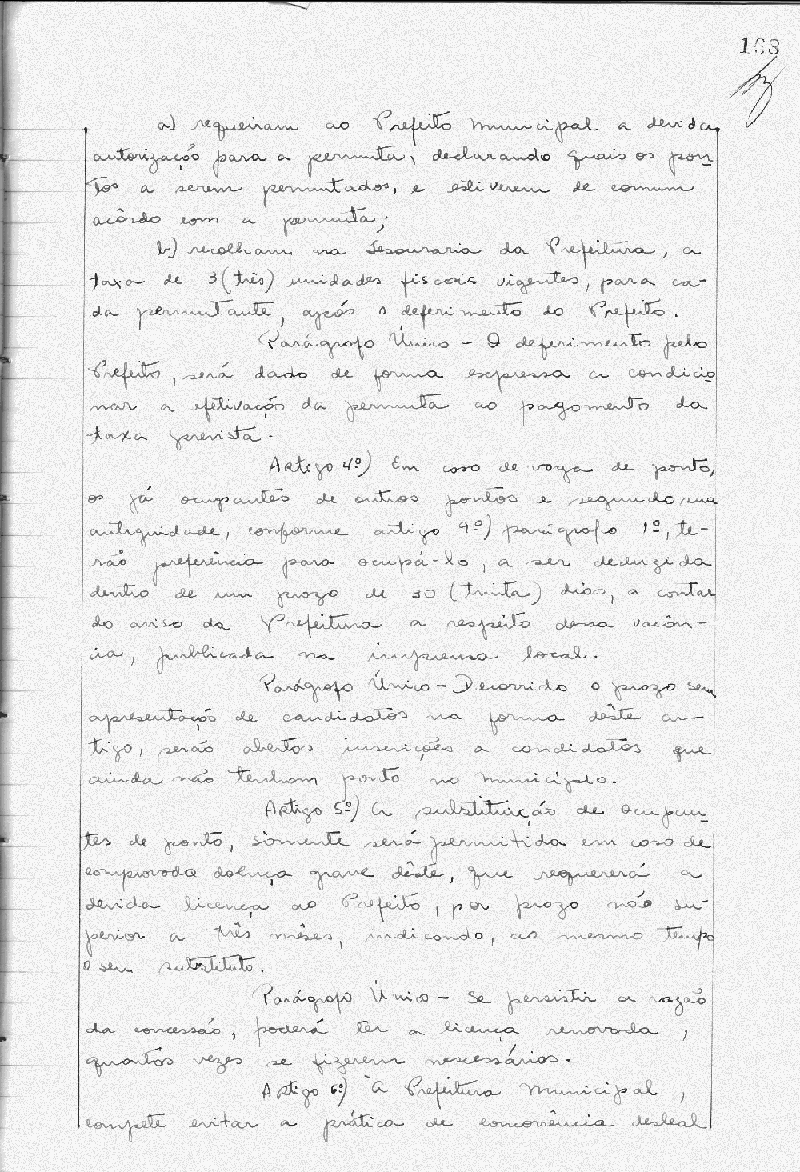 163
a) requeiram ao Prefeito Municipal a devida
autorização para a permuta, declarando quais os pon-
tos a serem permutados, e estiverem de comum
acôrdo com a permuta;
b) recolham na Tesouraria da Prefeitura, a
taxa de 3 (três) unidades fiscais vigentes, para ca-
da permutante, após o deferimento do Prefeito.
Parágrafo Único - O deferimento pelo
Prefeito, será dado de forma expressa a condicio
nar a efetivação da permuta ao pagamento da
taxa prevista.
Artigo 4º) Em caso de vaga de ponto,
os já ocupantes de outros pontos e segundo sua
antiguidade, conforme artigo 9º) parágrafo 1º, te-
rão preferência para ocupá-lo, a ser deduzida
dentro de um prazo de 30 (trinta) dias, a contar
do aviso da Prefeitura a respeito dessa vacân-
cia, publicada na imprensa local.
Parágrafo Único - Decorrido o prazo sem
apresentação de candidatos na forma dêste ar-
tigo, serão abertas inscrições a candidatos que
ainda não tenham ponto no município.
Artigo 5º) A substituição de ocupan-
tes de ponto, sòmente será permitida em caso de
comprovada doença grave dêste, que requererá a
devida licença ao Prefeito, por prazo não su-
perior a três mêses, indicando, ao mesmo tempo
o seu substituto.
Parágrafo Único - Se persistir a razão
da concessão, poderá ter a licença renovada,
quantas vezes se fizerem nescessários.
Artigo 6º) A Prefeitura Municipal,
compete evitar a prática de concorrência desleal